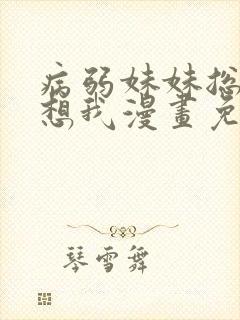 病弱妹妹总
想我漫畫免
琴雪舞